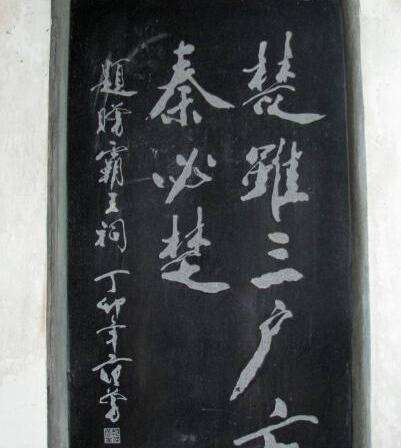 楚雖三户亡
秦必楚
題贈霸王祠 丁卯年